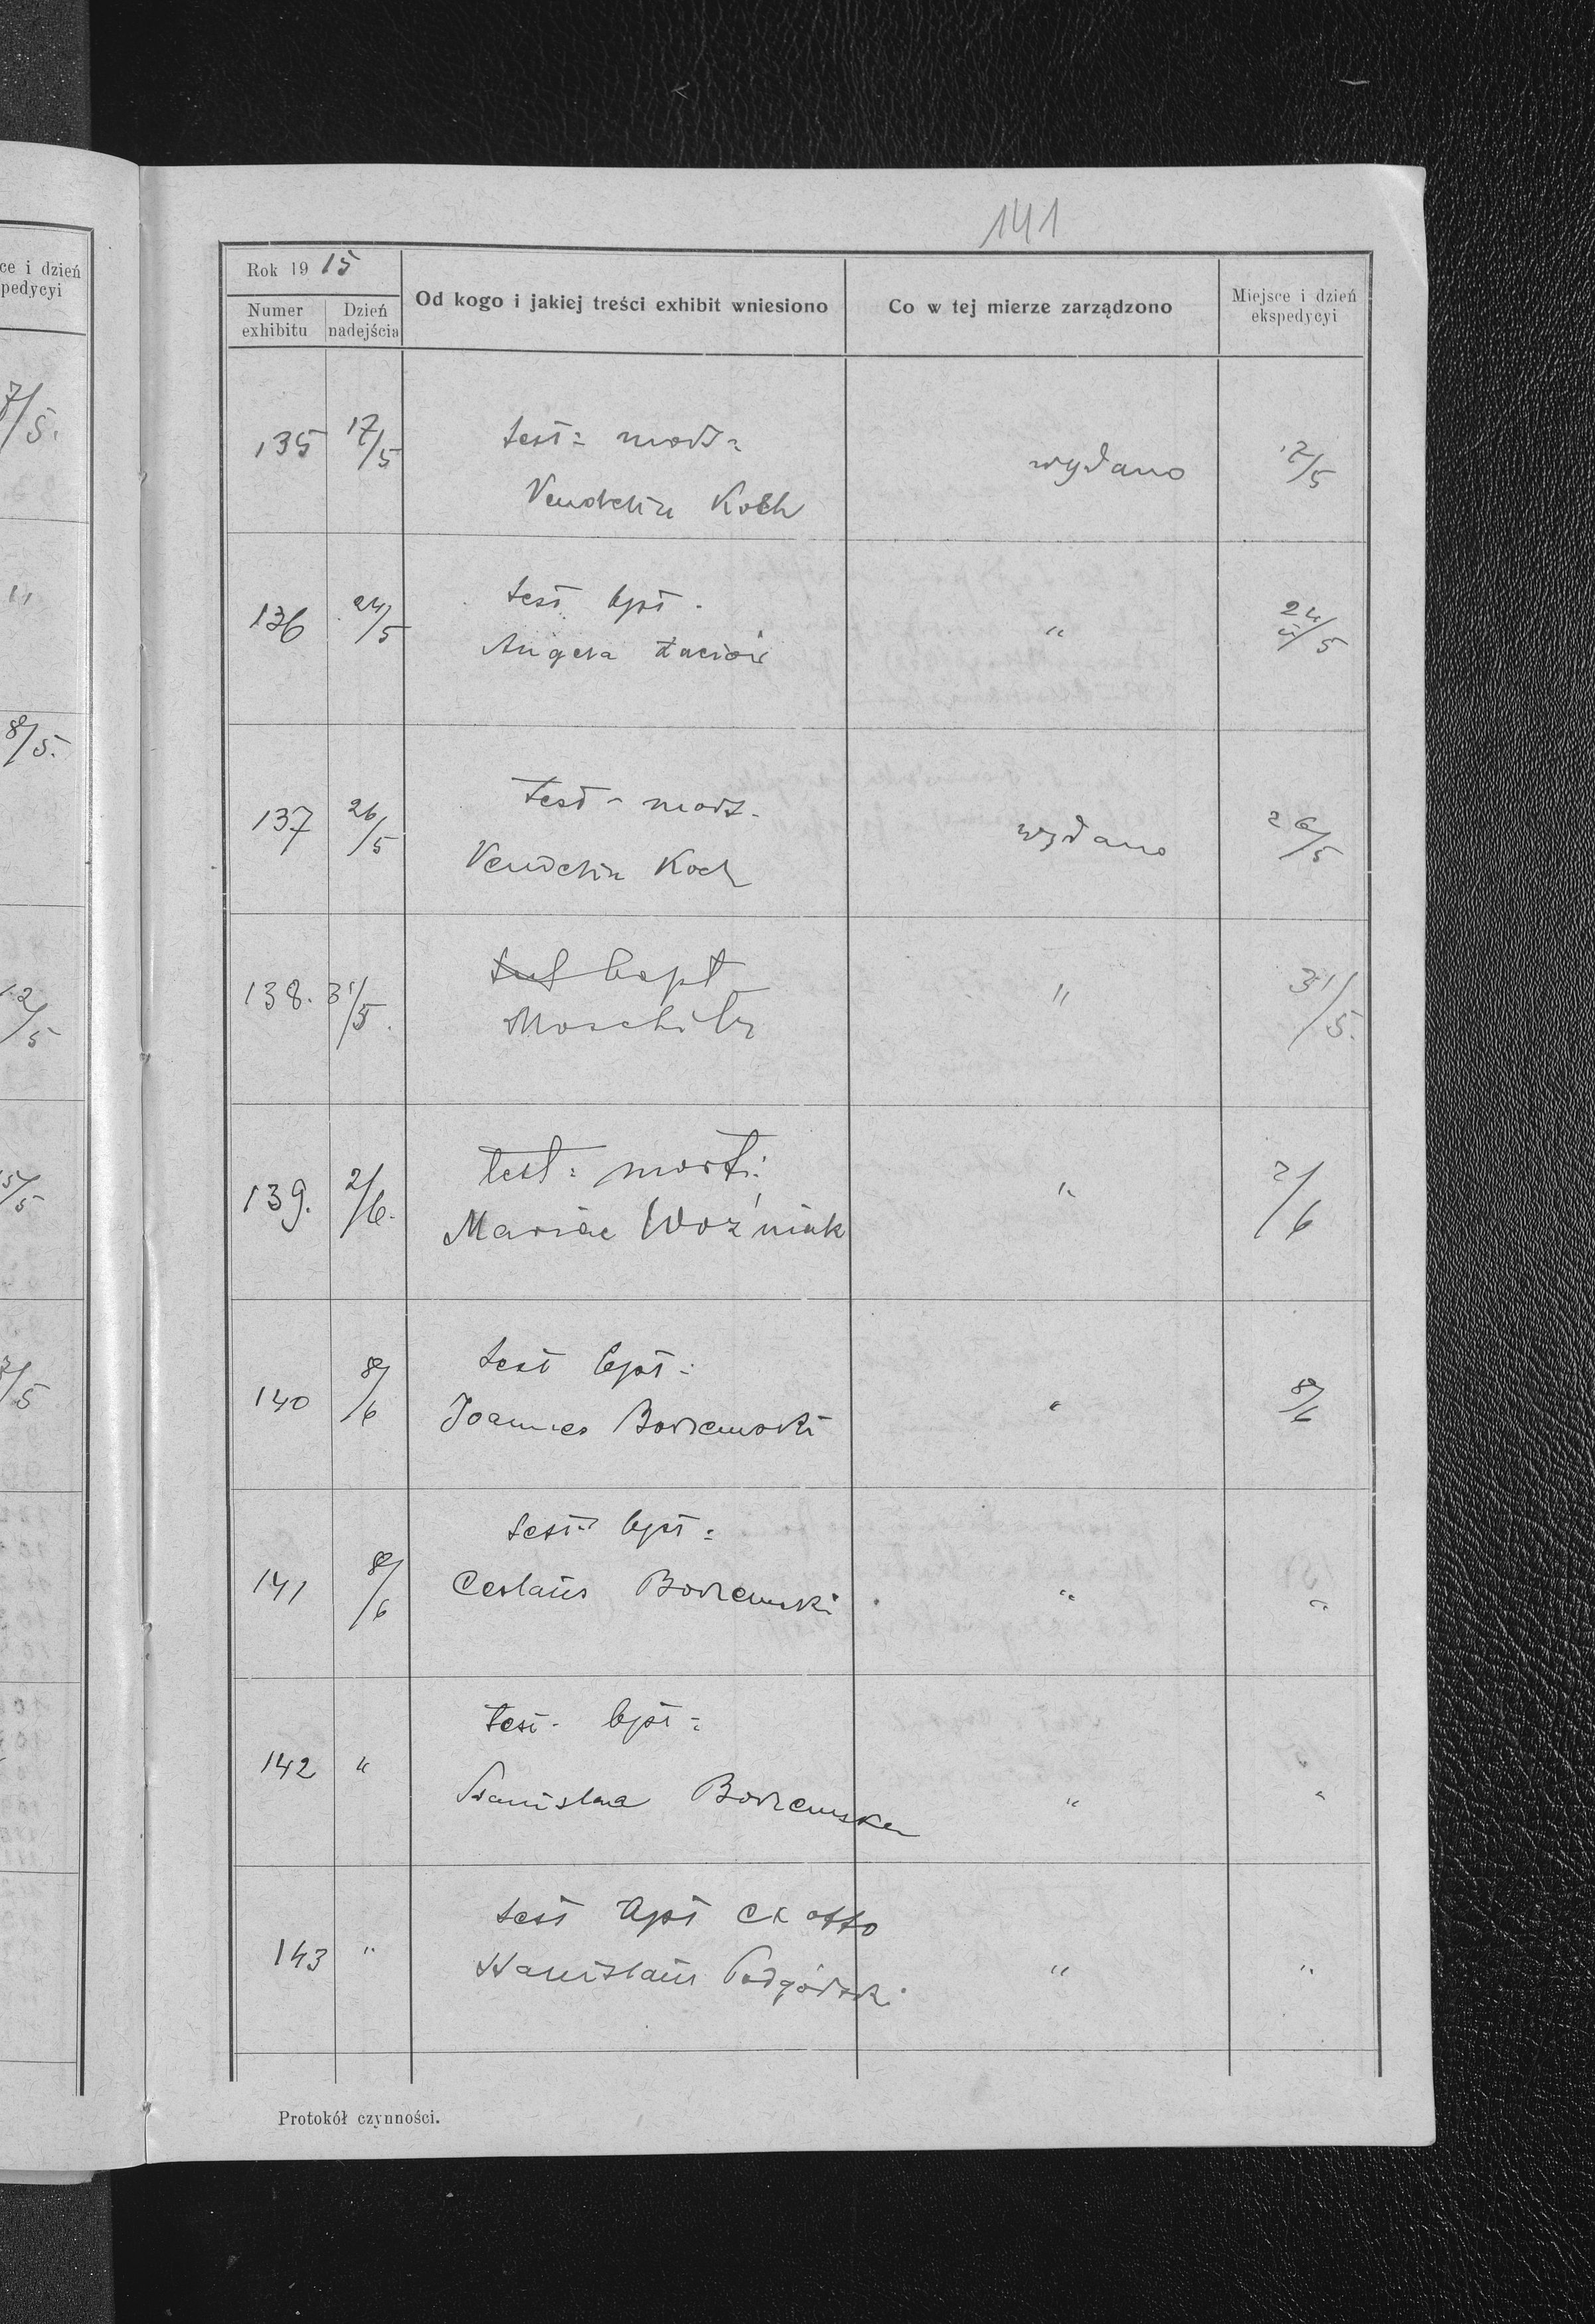 141
Rok 1915
Numer exhibitu
Dzień nadejścia
Od kogo i jakiej treści exhibit wniesiono
Co w tej mierze zarządzono
Miejsce i dzień ekspedycyi
135 17/5 test: mort: wydano 17/5
Vendelin Koch
136 24/5 test bpt. " 24/5
Angela
137 26/5 test - mort. wydano 26/5
Vendelin Koch
138. 31/5. test bapt " 31/5.
139. 2/6. test: mort: " 2/6
Mariae Woźniak
140 8/6 test bpt: " 8/6
Joannes Borzemski
141 8/6 test bpt: " "
Ceslaus Borzemski
142 " test. bpt: " "
Stanislava Borzemska
143 " test bpt ex offo " "
Stanislaus Podgórski
Protokół czynności.
ce i dzień
pedycyi
7/5.
"
8/5.
12/5
15/5